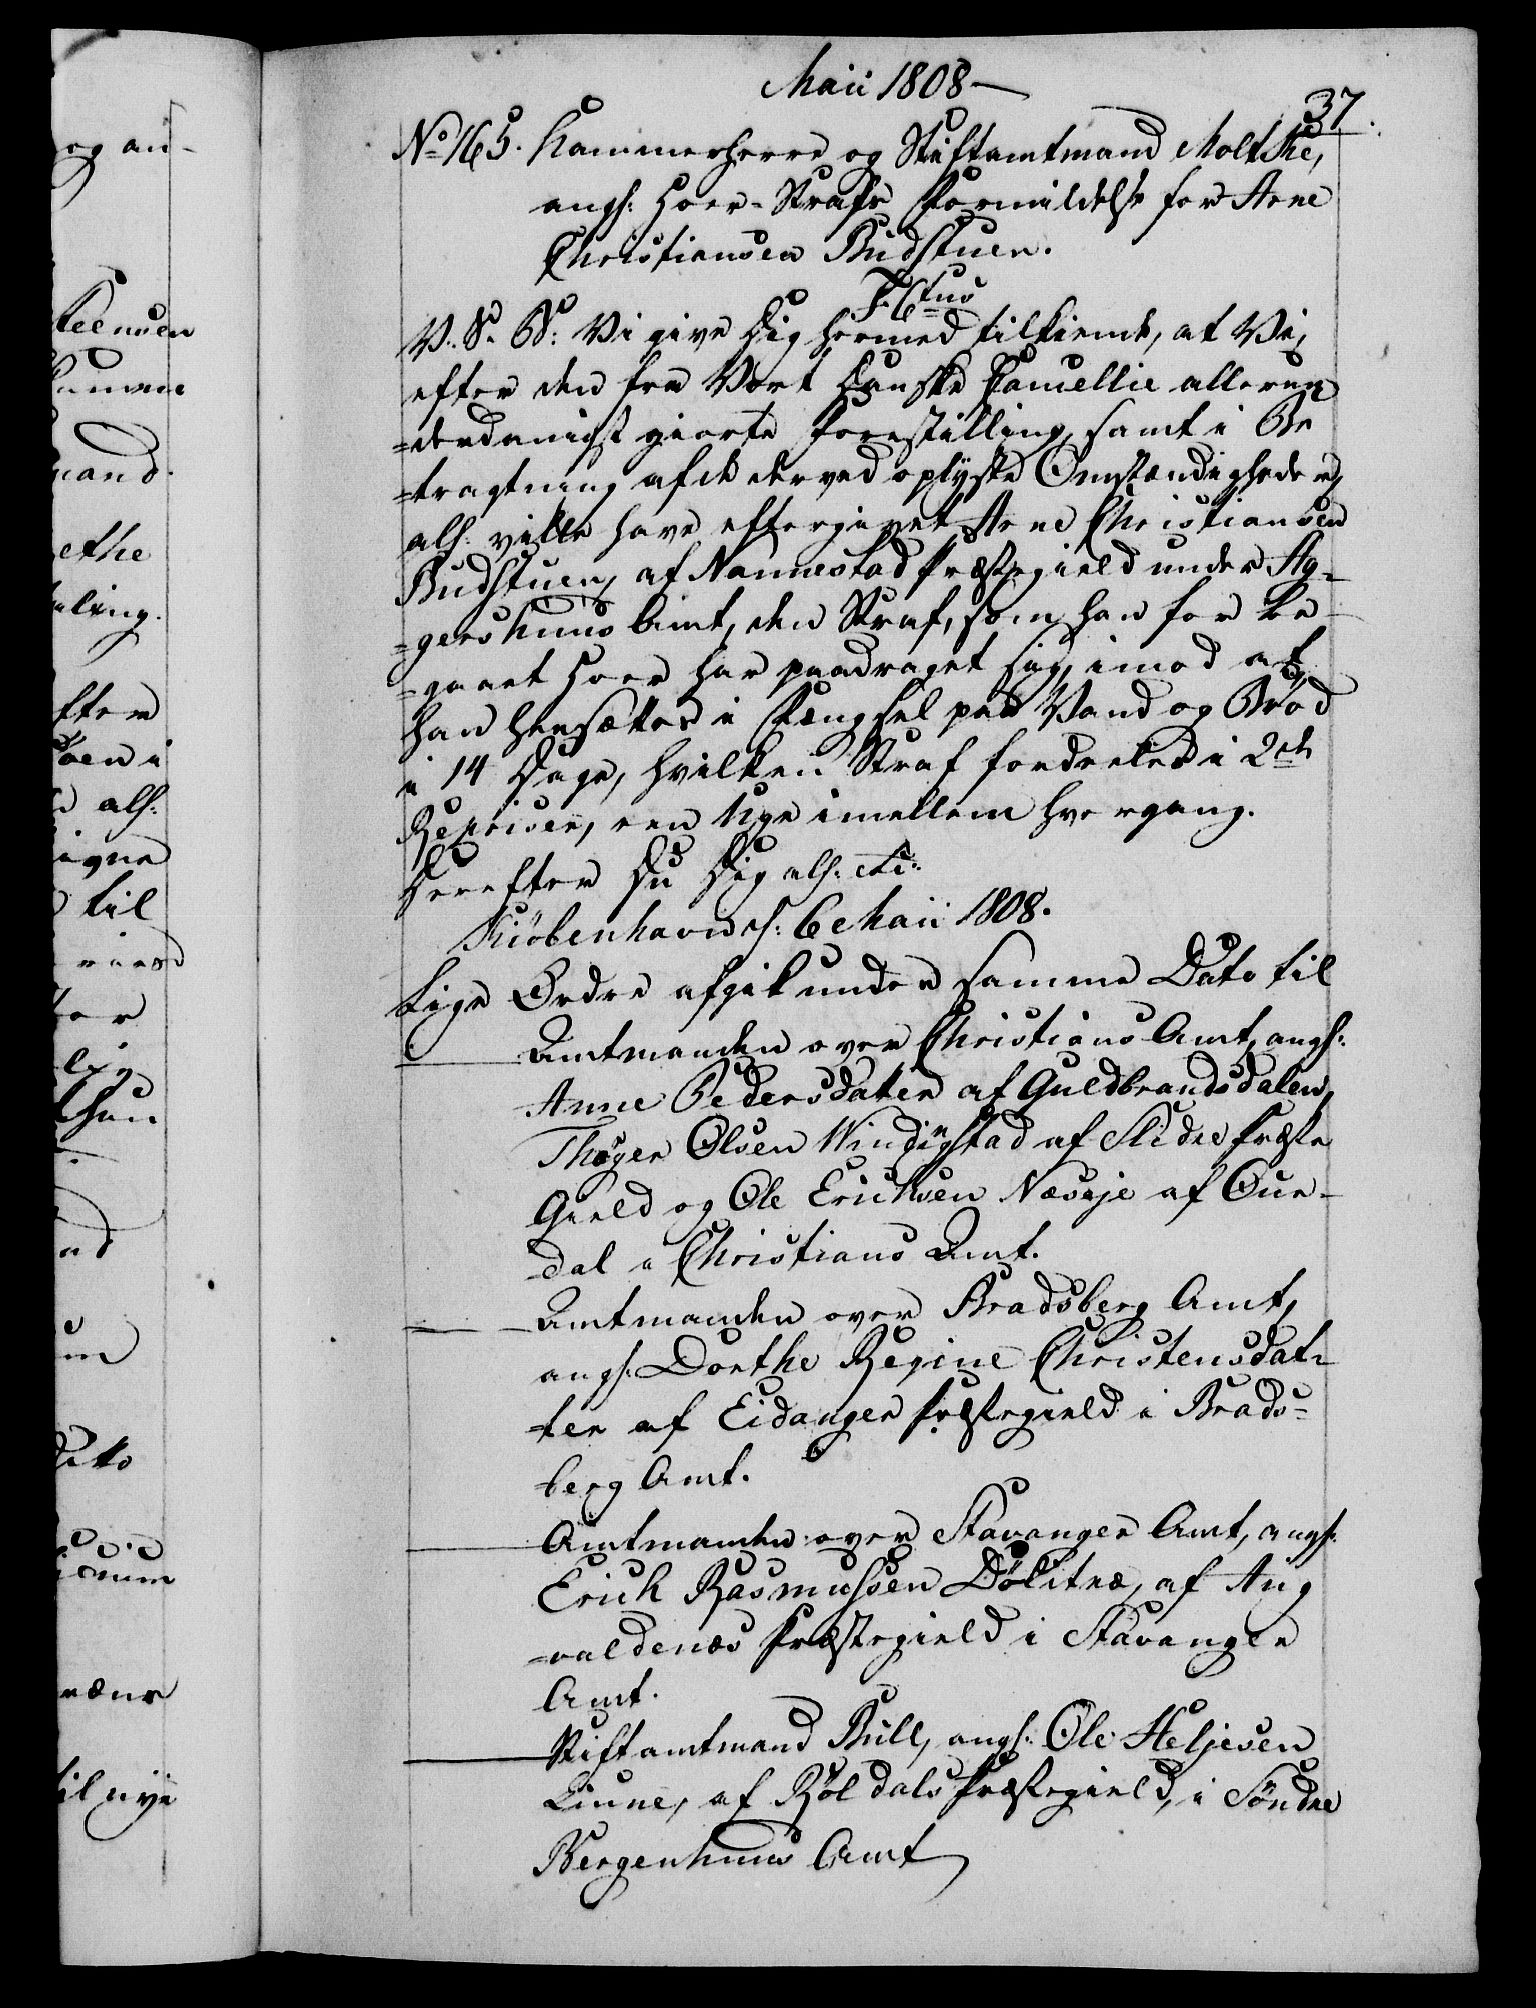 Maii 1808
37.
No 165. Kammerherre og Stiftamtmand Moltke,
angs: Hoer-Strafs Formildelse for Arne
Christiansen Budstuen.
F. 6tus
V. S. G: Vi give Dig hermed tilkiende, at Vi,
efter den fra Vort Danske Cancellie allerun
=derdanigst giorte Forestilling, samt i Be
=tragtning af de derved oplyste Omstændigheder,
als: ville have eftergivet Arne Christiansen
Budstuen, af Nannestad Præstegield under Ag=
=gershuus Amt, den Straf, som han for be
=gaaet Hoer har paadraget sig, imod at
han hensættes i Fængsel paa Vand og Brød
i 14 Dage, hvilken Straf fordeeles i 2de
Repriser, een Uge imellem hver gang.
Derefter Du Dig als: etc:
Kiöbenhavn d: 6 Maii 1808.
Lige Ordre afgik under samme Dato til
Amtmanden over Christians Amt, angs:
Anne Pedersdatter af Guldbrandsdalen,
Thoger Olsen Windingstad af Slidre Præste
Gield og Ole Erichsen Næseje af Our-
dal i Christians Amt.
Amtmanden over Bradsberg Amt,
angs: Dorthe Regine Christensdat=
=ter af Eidanger Præstegield i Brads=
=berg Amt.
Amtmanden over Stavanger Amt, angs:
Erich Rasmussen Döletræ, af Aug
=valdenæs Præstegield i Stavanger
Amt.
Stiftamtmand Bull, angs: Ole Heljesen
Liune, af Röldals Præstegield, i Söndre
Bergenhuus Amt